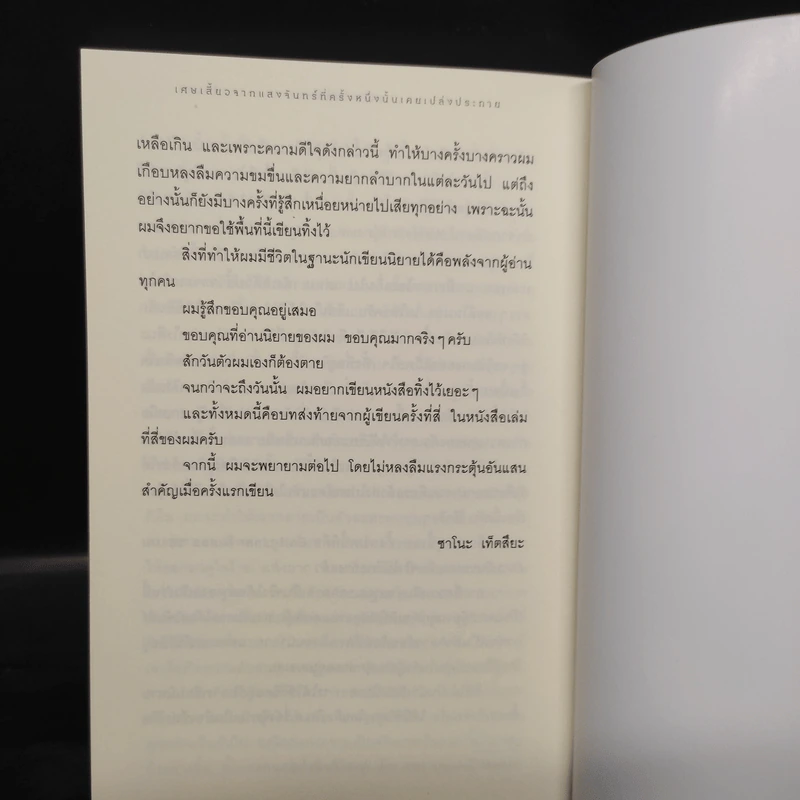 เศษเสี้ยวจากแสงจันทร์ที่ครั้งหนึ่งนั้นเคยเปล่งประกาย
เหลือเกิน และเพราะความดีใจดังกล่าวนี้ ทำให้บางครั้งบางคราวผม
เกือบหลงลืมความขมขื่นและความยากลำบากในแต่ละวันไป แต่ถึง
อย่างนั้นก็ยังมีบางครั้งที่รู้สึกเหนื่อยหน่ายไปเสียทุกอย่าง เพราะฉะนั้น
ผมจึงอยากขอใช้พื้นที่นี้เขียนทิ้งไว้
สิ่งที่ทำให้ผมมีชีวิตในฐานะนักเขียนนิยายได้คือพลังจากผู้อ่าน
ทุกคน
ผมรู้สึกขอบคุณอยู่เสมอ
ขอบคุณที่อ่านนิยายของผม ขอบคุณมากจริงๆครับ
สักวันตัวผมเองก็ต้องตาย
จนกว่าจะถึงวันนั้น ผมอยากเขียนหนังสือทิ้งไว้เยอะๆ
และทั้งหมดนี้คือบทส่งท้ายจากผู้เขียนครั้งที่สี่ ในหนังสือเล่ม
ที่สี่ของผมครับ
จากนี้ ผมจะพยายามต่อไป โดยไม่หลงลืมแรงกระตุ้นอันแสน
สำคัญเมื่อครั้งแรกเขียน
ซาโนะ เท็ตสึยะ